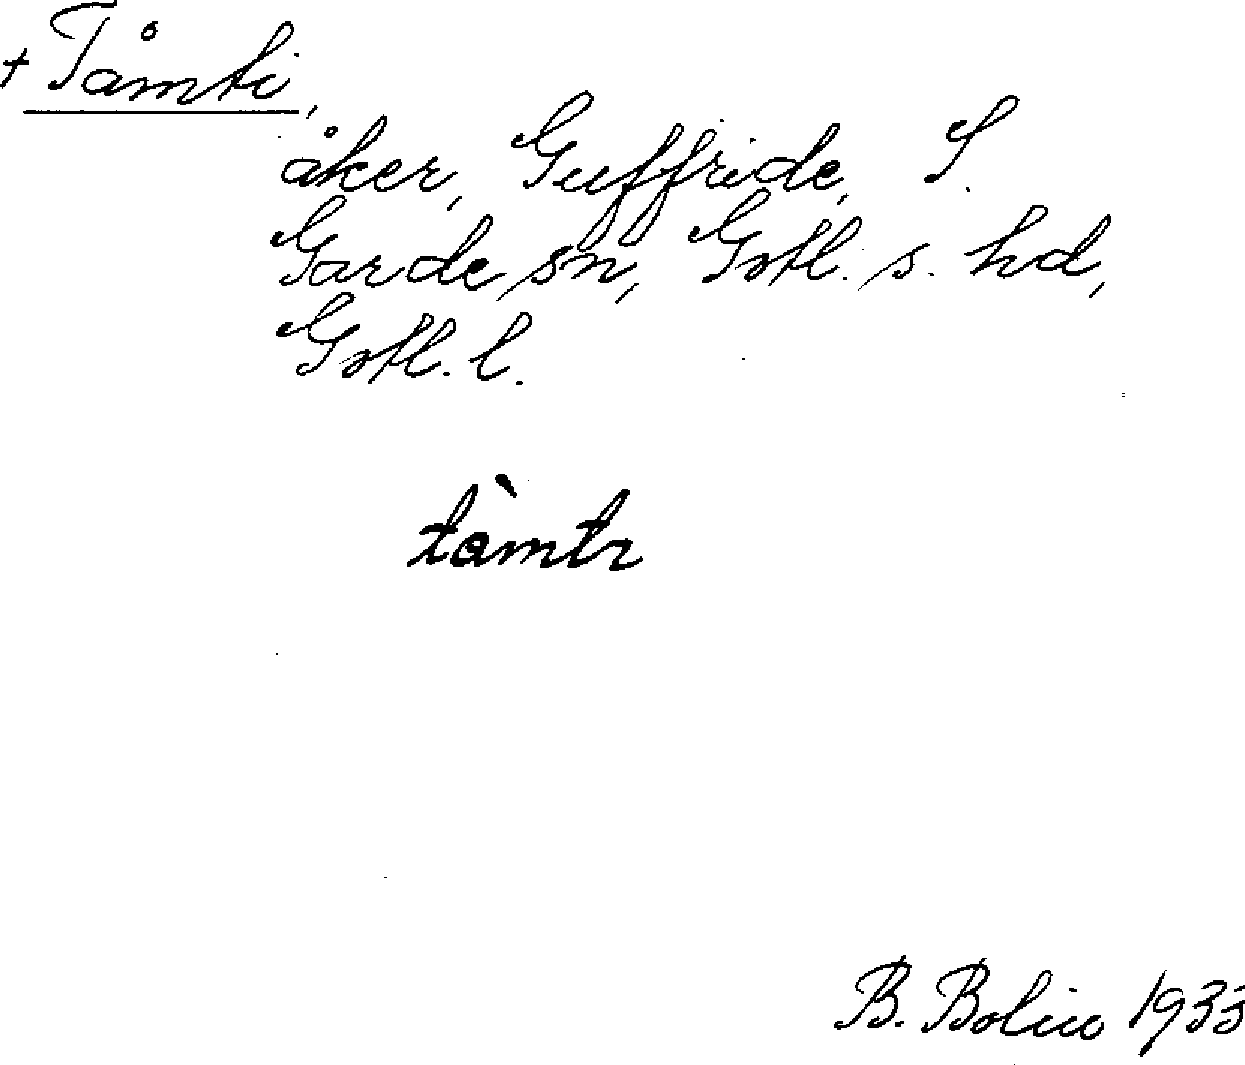 + Tåmti,
åker, Guffride, S.
Garde sn, Gotl. s. hd,
Gotl. l.
tàmtı
B. Bolin 1933